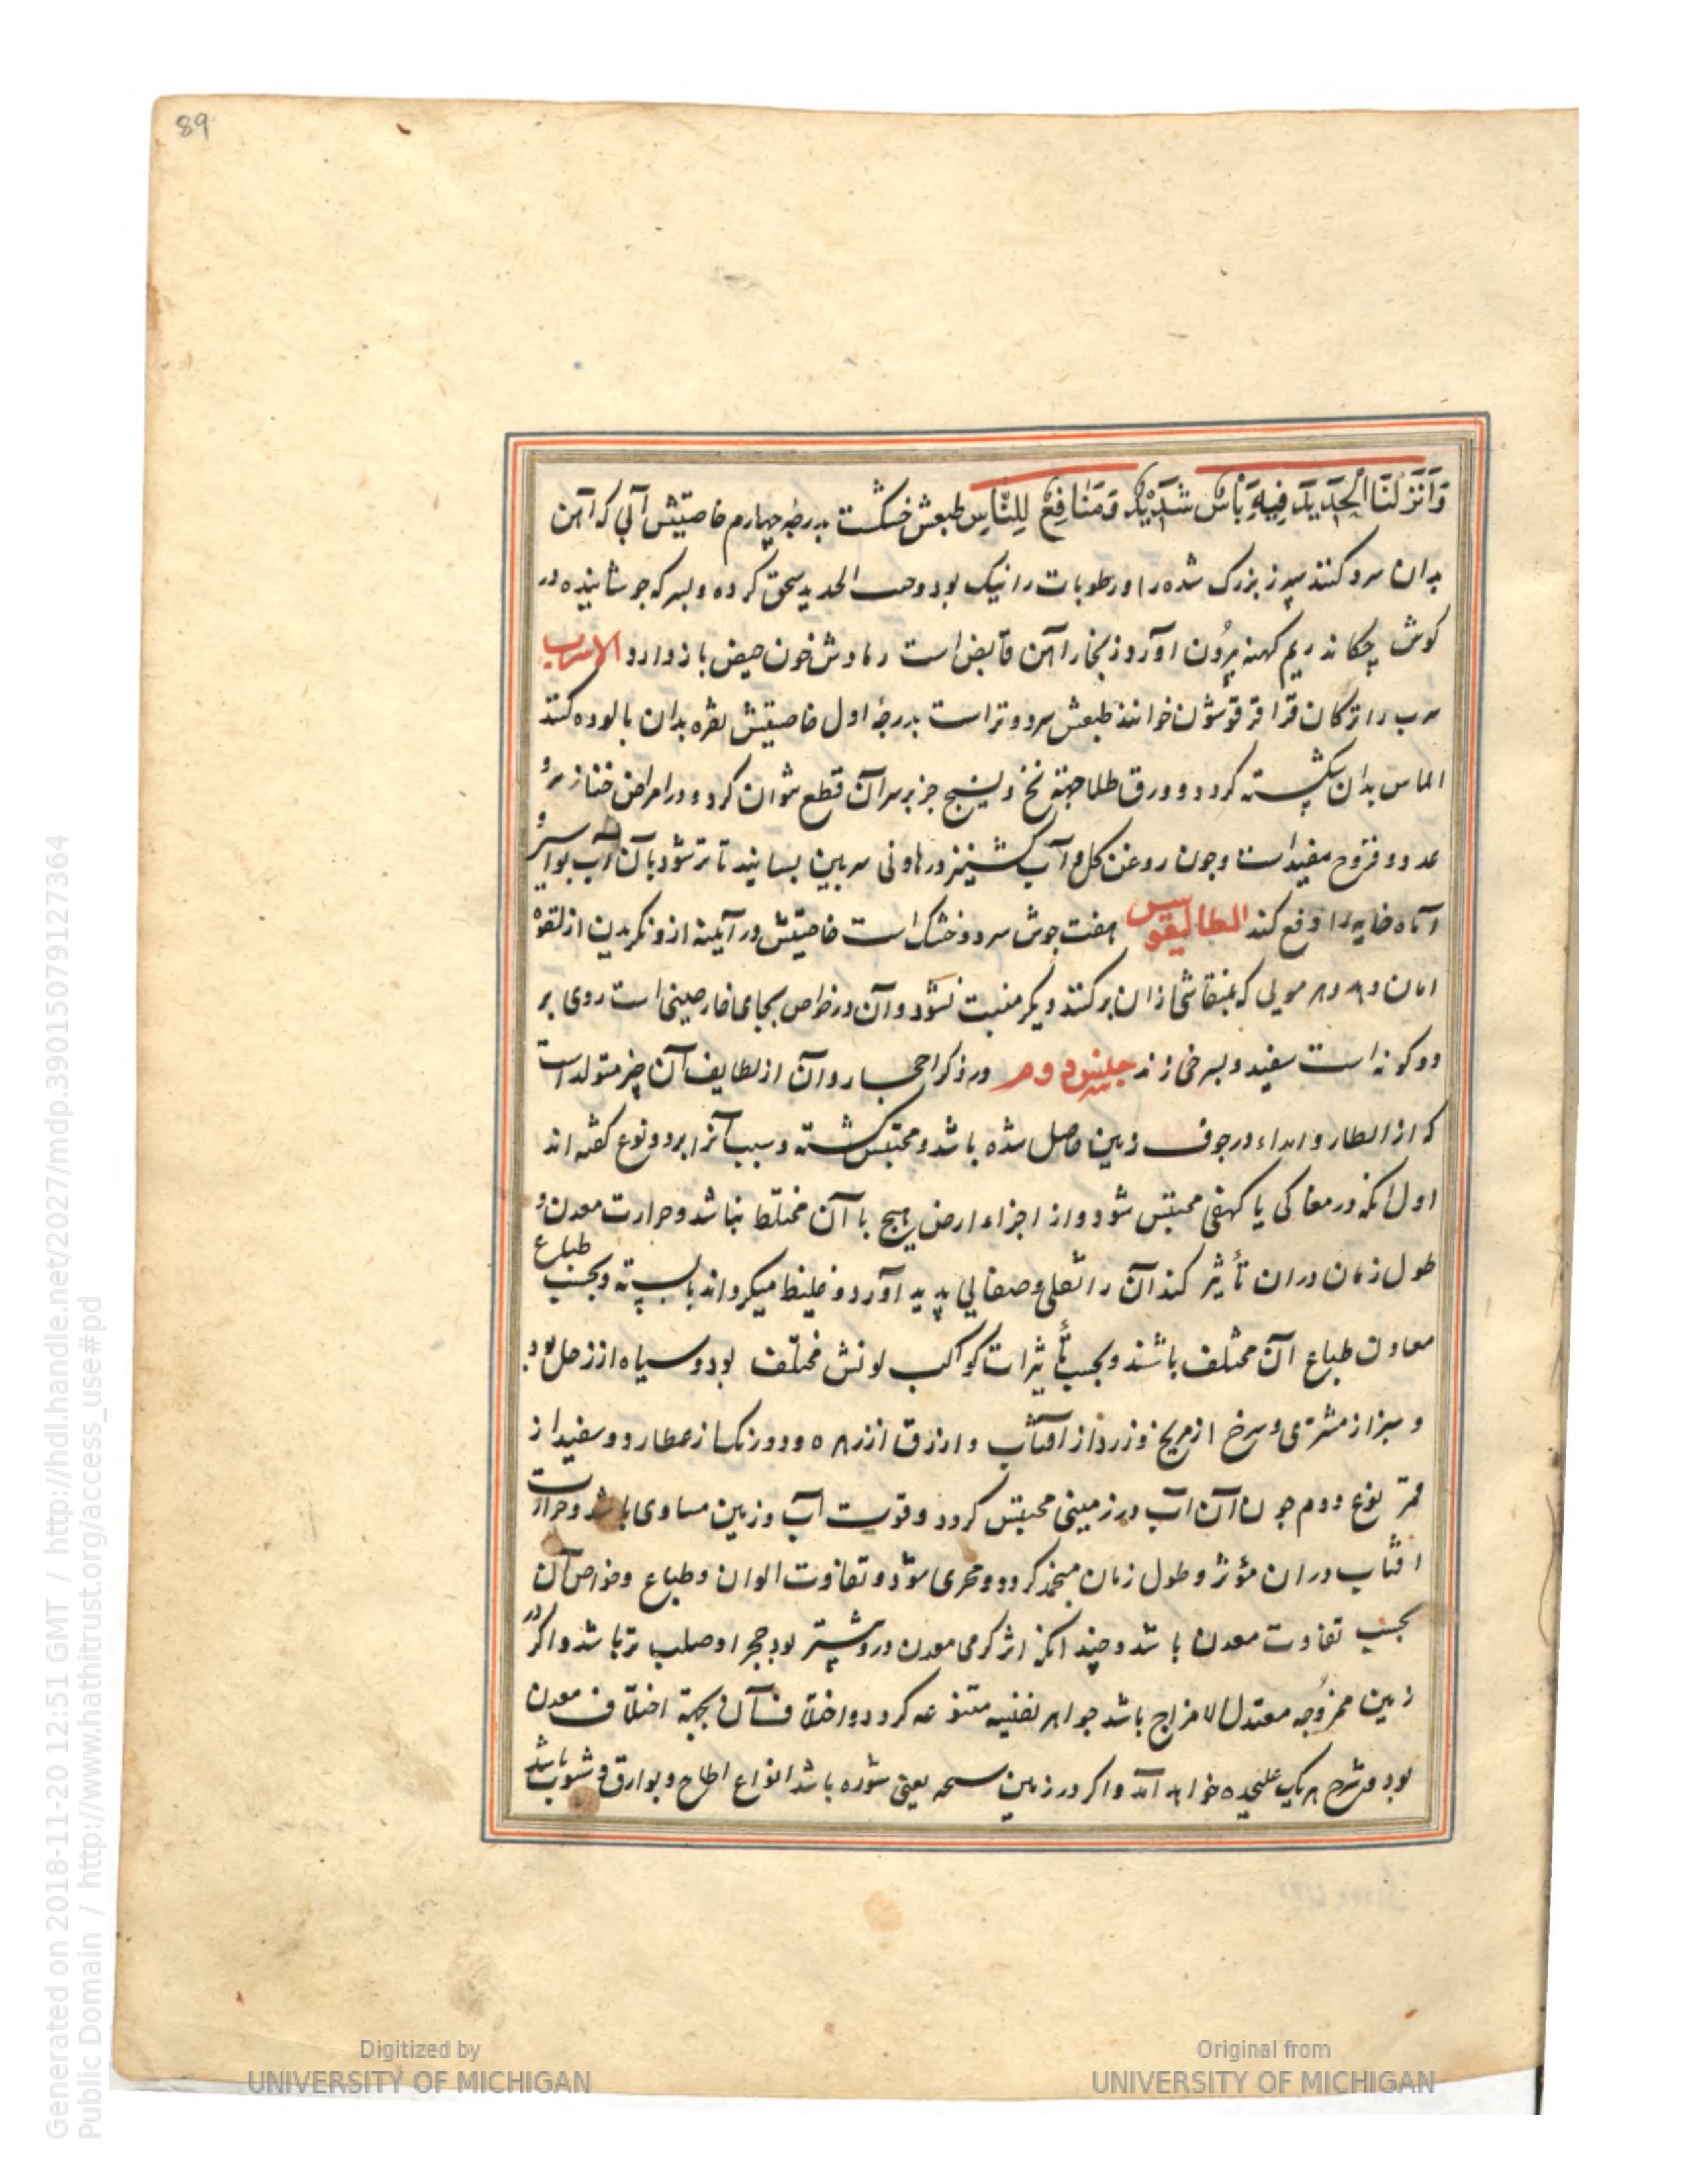 89
وَأَنْزَلْنَا الْحَدِيدَ فِيهِ بَأْسٌ شَدِيدٌ وَمَنَافِعُ لِلنَّاسِ طبعش خشکست بدرجهٔ چهارم خاصیتش آبی که آهن
بدان سرد کنند سپرز بزرک شده را ورطوبات را نیک بود وخبث الحدید سحق کرده وبسرکه جوشانیده در
کوش چکاند ریم کهنه بیرُون آورد وزنجار آهن قابض است رمادش خون حیض باز دارد الاسرب
سرب را ترکان قرا قرقوشون خوانند طبعش سرد وتر است بدرجهٔ اول خاصیتش نقره بدان پالوده کنند
الماس بدان شکسته کردد و ورق طلا جهة نخ ونسیج جز بر سر آن قطع نتوان کرد ودر امراض خنازیر و
غدد وقروح مفید است وچون روغن کل و آب کشنیز در هاونی سربین بسایند تا تر شود با آن آب بواسیر و
آماه خایه را دفع کند الطالیقوس هفت جوش سرد وخشک است خاصیتش در آیینه ازو نکریدن از لقوه
امان دهد وهر مویی که بمنقاشی ازان برکنند دیکر منبت نشود وآن در خواص بجای خارصینی است روی بر
دو کونه است سفید وبسرخی زند جنس دوم در ذکر احجار وآن از لطایف آن چیز متولد است
که از امطار وانداء در جوف زمین حاصل شده باشد ومحتبس کشته وسبب آنرا بر دو نوع کفته اند
اول آنکه در مغاکی یا کهفی محتبس شود واز اجزاء ارض هیچ با آن مختلط نباشد وحرارت معدن و
طول زمان دران تأثیر کند آن را ثقلی وصفایی پدید آورد وغلیظ میکرداند یا بسته وبحسب طباع
معادن طباع آن مختلف باشند وبحسب تأثیرات کواکب لونش مختلف بود وسیاه از زحل بود
و سبز از مشتری وسرخ از مریخ وزرد از آفتاب وازرق از زهره ودو رنک از عطارد وسفید از
قمر نوع دوم چون آن آب در زمینی محتبس کردد وقوت آب وزمین مساوی باشد وحرارت
افتاب دران مؤثر وطول زمان منجمد کردد ومحری شود وتفاوت الوان وطباع وخواص آن
بحسب تفاوت معدن باشد وچندانکه اثر کرمی معدن درو بیشتر بود حجر او صلب تر باشد واکر در
زمین ممزوجه معتدل الامزاج باشد جواهر نفیسه متنوعه کردد واختلاف آن بجهة اختلاف معدن
بود وشرح هریک علیحده خواهد آمد واکر در زمین سبخه یعنی شوره باشد انواع املاح وبوارق وشبوب باشد
Generated on 2018-11-20 12:51 GMT / http://hdl.handle.net/2027/mdp.39015079127364
Public Domain / http://www.hathitrust.org/access_use#pd
Digitized by
UNIVERSITY OF MICHIGAN
Original from
UNIVERSITY OF MICHIGAN